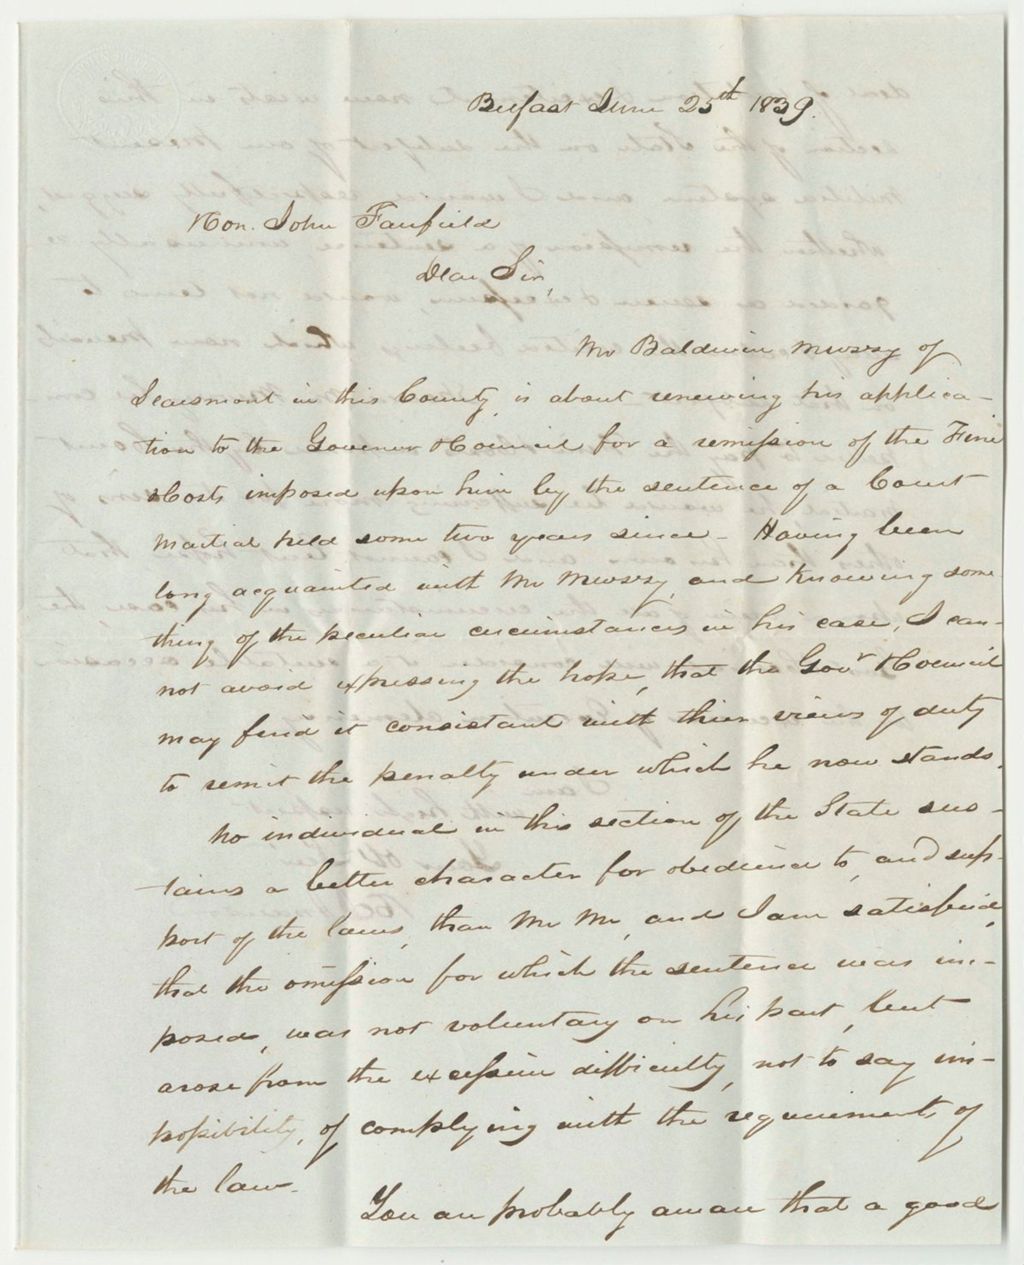 Belfast June 25th 1839.
Hon. John Fairfield
Dear Sir,
Mr Baldwin Munsey of
Searsmont in this County, is about renewing his applica-
tion to the Governor & Council for a remission of the Fine
& Costs imposed upon him by the sentence of a Court
Martial held some two years since - Having been
long acquainted with Mr Munsey, and knowing some-
thing of the peculiar circumstances in his case, I can-
not avoid expressing the hope, that the Govr & Council
may find it consistant with thier views of duty
to remit the penalty under which he now stands.
No individual in this section of the State sus-
tains a better character for obedience to, and sup-
port of the laws, than Mr M, and I am satisfied,
that the omission for which the sentence was im-
posed, was not voluntary on his part, but
arose from the excessive difficulty, not to say im-
possibility, of complying with the requirements of
the law.
You are probably aware that a good